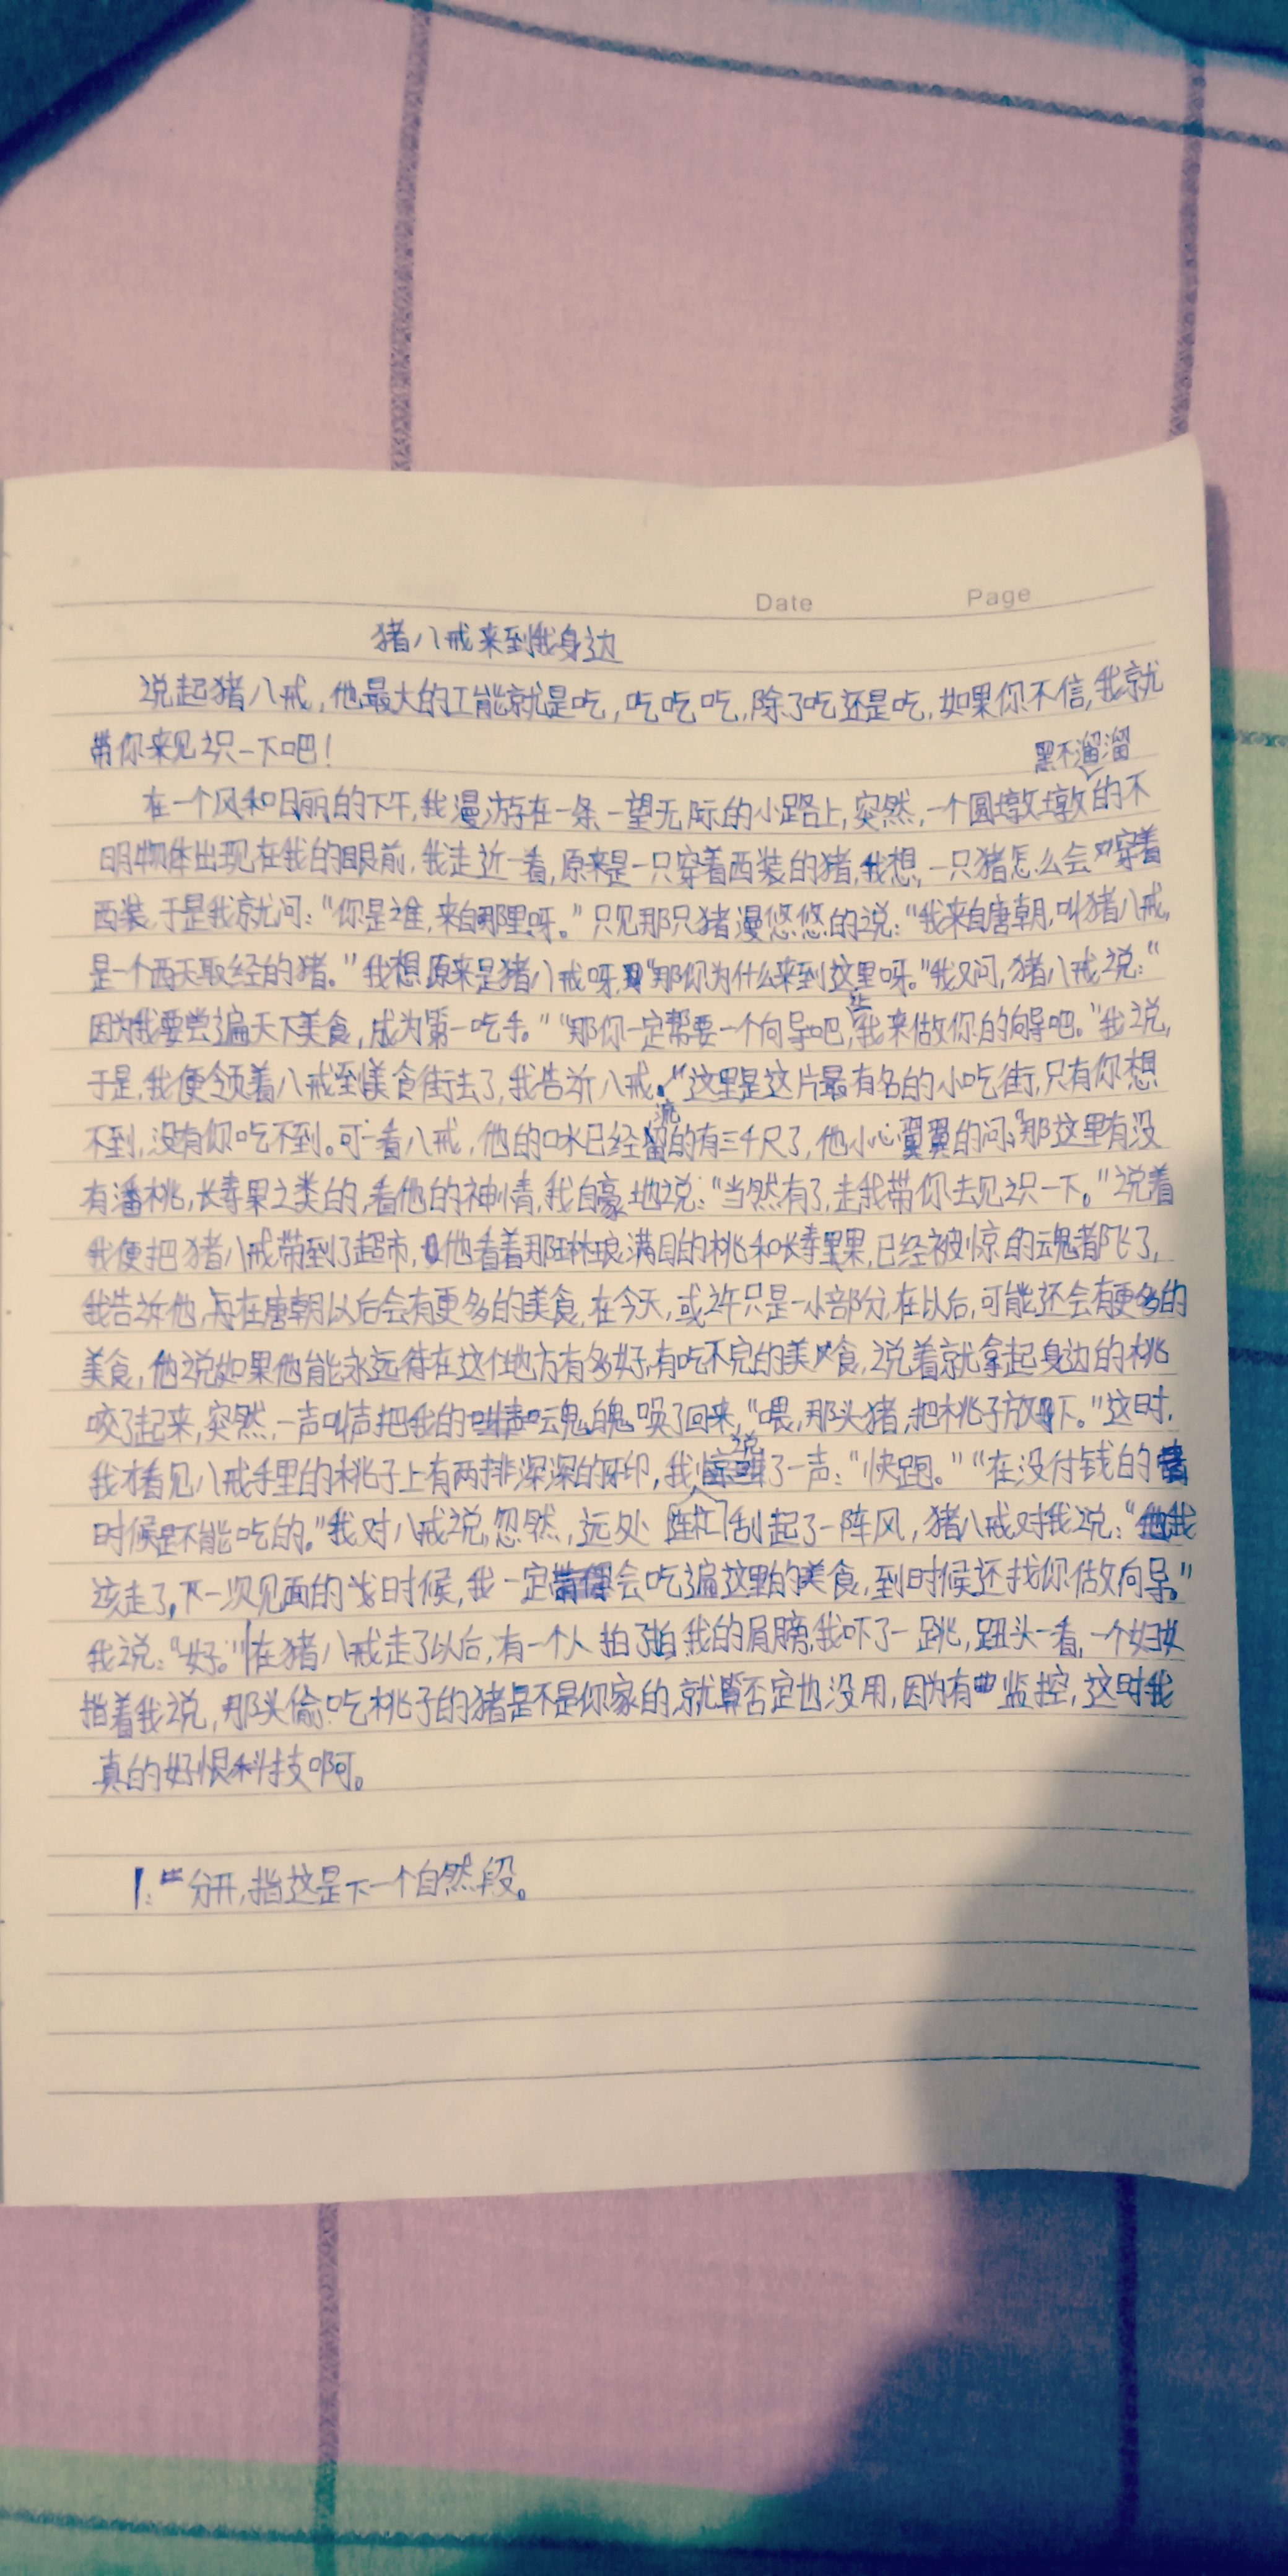 Date Page
猪八戒来到我身边
说起猪八戒,他最大的工能就是吃,吃吃吃,除了吃还是吃,如果你不信,我就
带你来见识一下吧!
黑不溜溜
在一个风和日丽的下午,我漫游在一条一望无际的小路上,突然,一个圆墩墩的不
明物体出现在我的眼前,我走近一看,原来是一只穿着西装的猪,我想,一只猪怎么会穿着
西装,于是我就问:“你是谁,来自那里呀。”只见那只猪漫悠悠的说:“我来自唐朝,叫猪八戒,
是一个西天取经的猪。”我想原来是猪八戒呀,“那你为什么来到这里呀。”我又问,猪八戒说:“
因为我要尝遍天下美食,成为第一吃手。”“那你一定帮要一个向导吧,让我来做你的向导吧。”我说,
于是,我便领着八戒到美食街去了,我告诉八戒,“这里是这片最有名的小吃街,只有你想
不到,没有你吃不到。可一看八戒,他的口水已经流的有三千尺了,他小心翼翼的问,“那这里有没
有潘桃,长寿果之类的,看他的神情,我自豪地说:“当然有了,走我带你去见识一下。”说着
我便把猪八戒带到了超市,他看着那琳琅满目的桃和长寿果,已经被惊的魂都飞了,
我告诉他,在唐朝以后会有更多的美食,在今天,或许只是一小部分,在以后,可能还会有更多的
美食,他说如果他能永远待在这个地方有多好,有吃不完的美食,说着就拿起身边的桃
咬了起来,突然,一声叫声把我的魂唤了回来,“喂,那头猪,把桃子放下。”这时,
我才看见八戒手里的桃子上有两排深深的牙印,我说了一声:“快跑。”“在没付钱的
时候是不能吃的。”我对八戒说,忽然,远处刮起了一阵风,猪八戒对我说:“我
该走了,下一次见面的时候,我一定会吃遍这里的美食,到时候还找你做向导。”
我说:“好。”|在猪八戒走了以后,有一个人拍了拍我的肩膀,我吓了一跳,扭头一看,一个妇女
指着我说,那头偷吃桃子的猪是不是你家的,就算否定也没用,因为有监控,这时我
真的好恨科技啊。
|:分开,指这是下一个自然段。